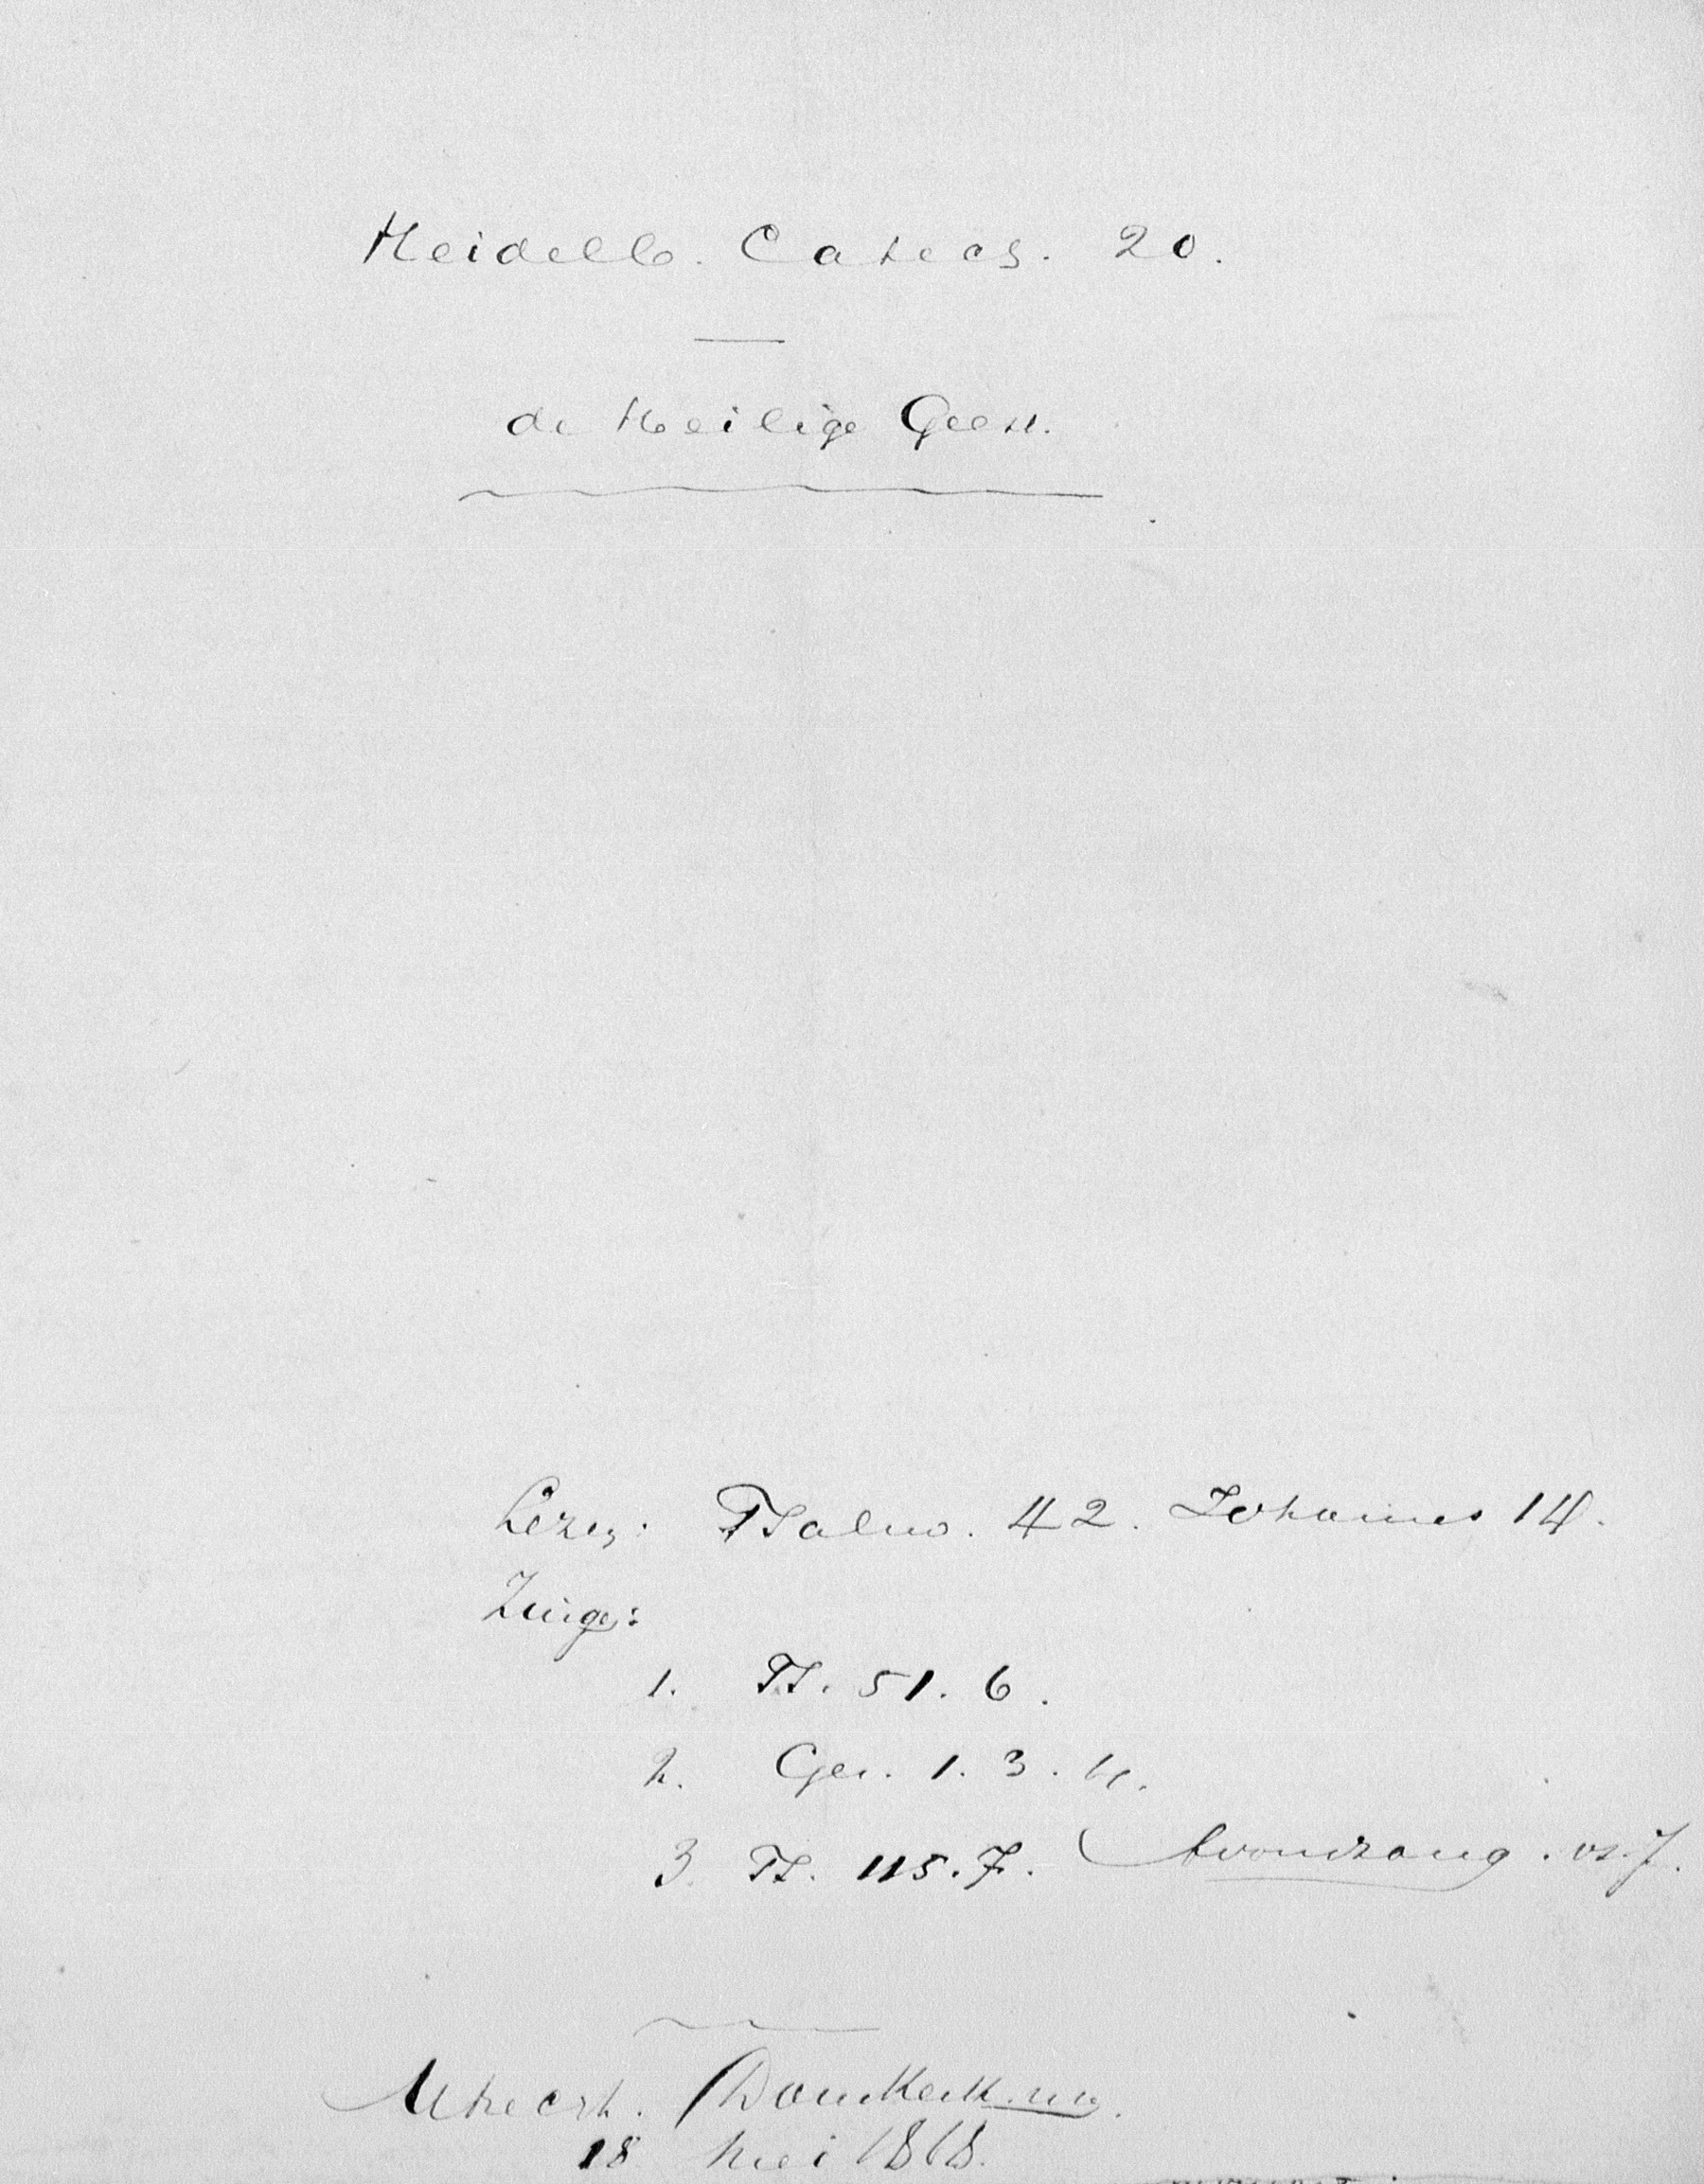 Heidelb. Catech. 20.
de Heilige Geest.
Lezen: Psalm. 42. Johannes 14.
Zingen:
1. Ps. 51. 6.
2. Gez. 1. 3. 4.
3. Ps. 115. 7. Avondzang. vs. 7.
Utrecht. Domkerk.
18 Mei 1868.